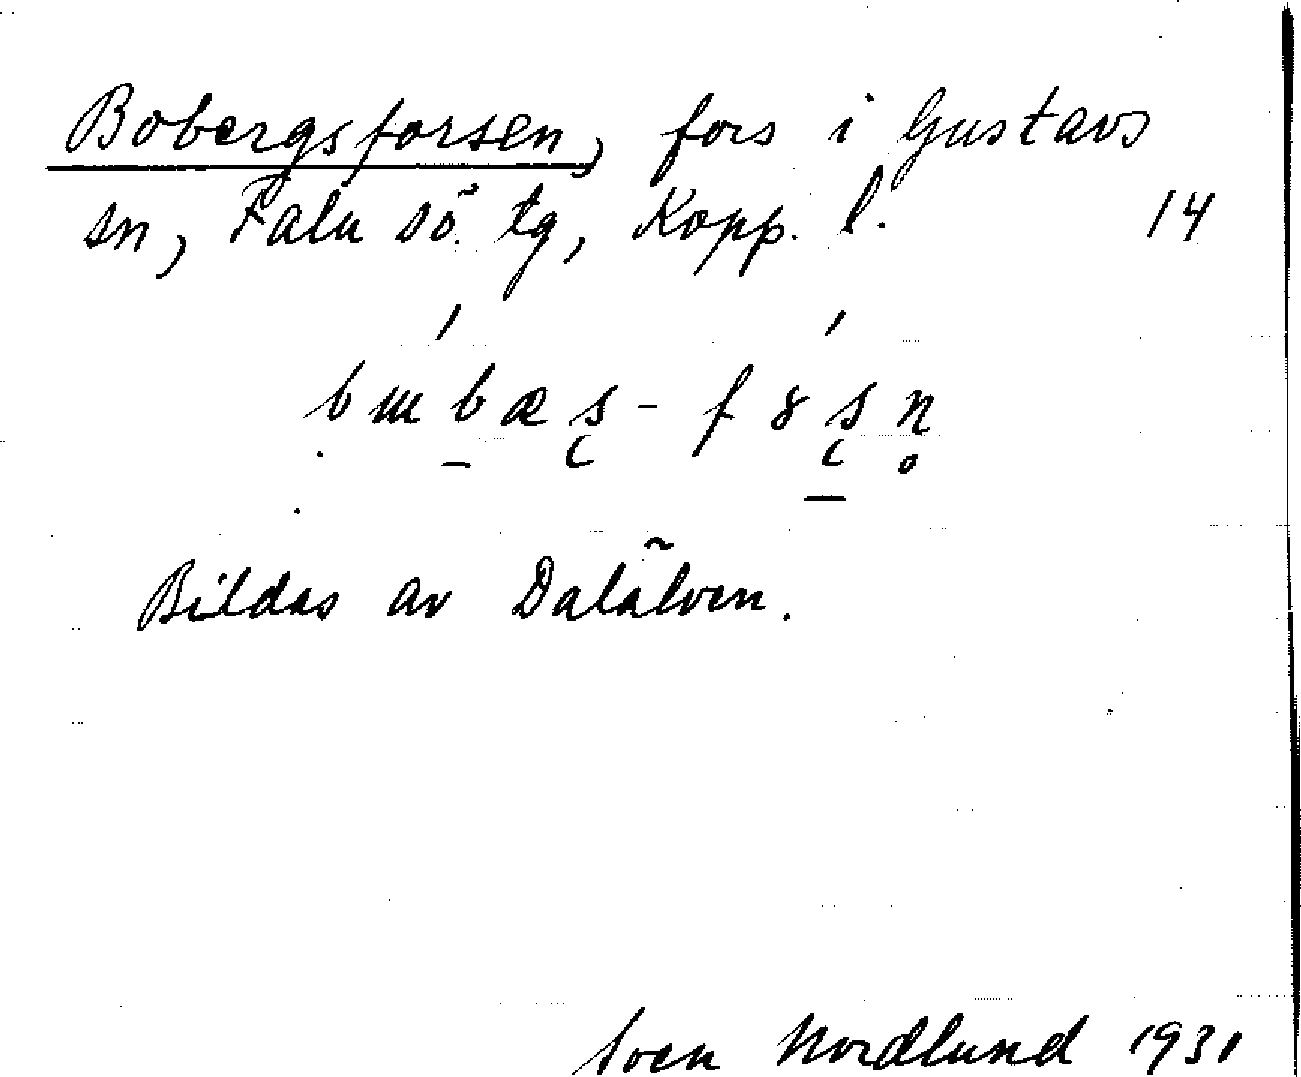 Bobergsforsen, fors i Gustavs
sn, Falu sö. tg, Kopp. l. 14
Bildas av Dalälven.
Sven Nordlund 1931